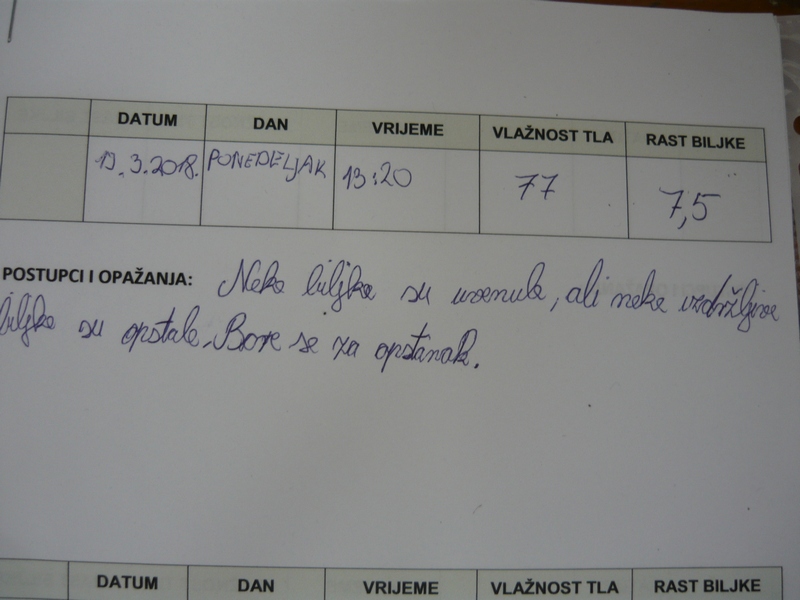 DATUM DAN VRIJEME VLAŽNOST TLA RAST BILJKE
19.3.2018. PONEDELJAK 13:20 77 7,5
POSTUPCI I OPAŽANJA: Neke biljke su uvenule, ali neke izdržljive
biljke su opstale. Bore se za opstanak.
DATUM DAN VRIJEME VLAŽNOST TLA RAST BILJKE